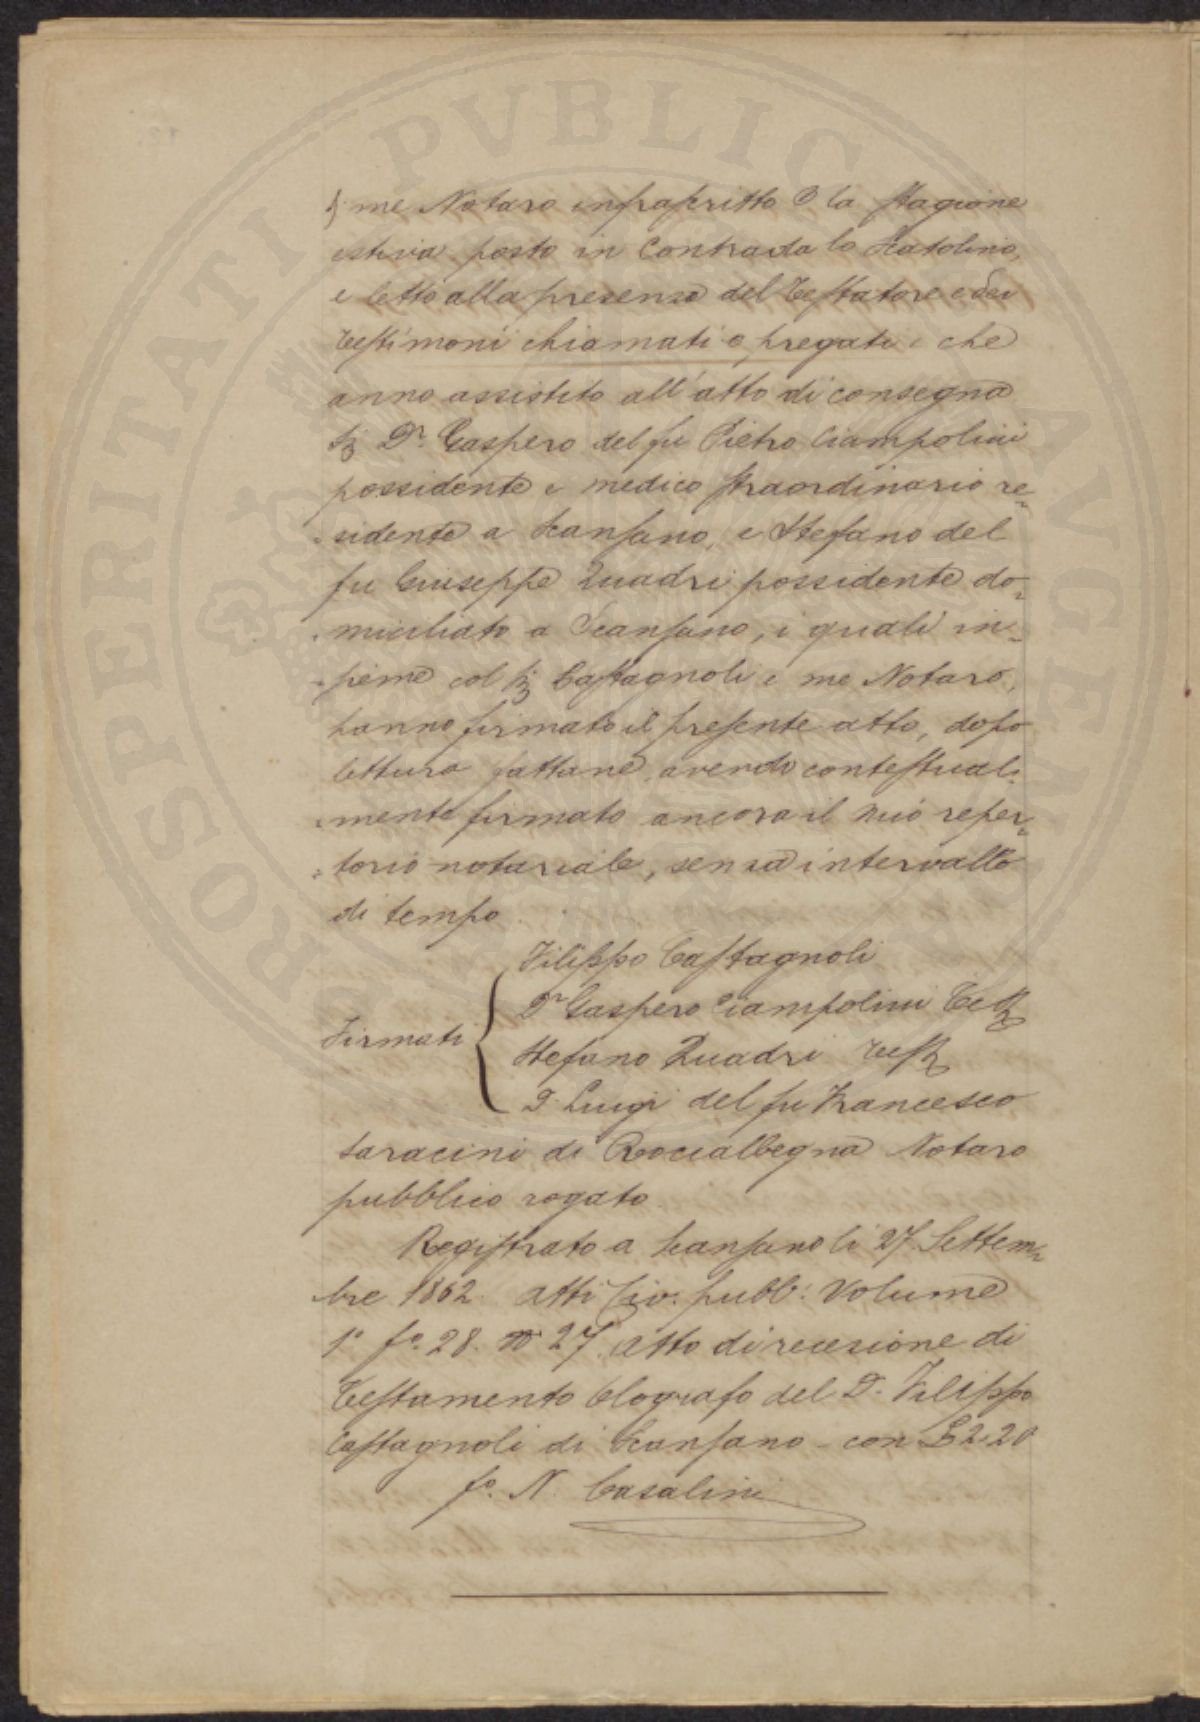 PROSPERITATI PVBLICÆ AVGENDÆ
me Notaro infrascritto la stagione
estiva posto in Contrada lo Scatolino,
e letto alla presenza del Testatore e dei
testimoni chiamati e pregati e che
anno assistito all'atto di consegna
SS.ri Dr. Gaspero del fu Pietro Ciampolini
possidente e medico straordinario re-
sidente a Scansano, e Stefano del
fu Giuseppe Quadri possidente do-
miciliato a Scansano, i quali in-
sieme col Sig Castagnoli e me Notaro,
hanno firmato il presente atto, dopo
lettura fattane, avendo contestual-
mente firmato ancora il mio reper-
torio notariale, senza intervallo
di tempo
Filippo Castagnoli
Dr Gaspero Ciampolini Test
Firmati
Stefano Quadri test
D. Luigi del fu Francesco
Saracini di Roccalbegna Notaro
pubblico rogato.
Registrato a Scansano li 27 Settem-
bre 1862. atti Civ. pubb: Volume
1º fº. 28. Nº 27. atto di recezione di
Testamento Olografo del D. Filippo
Castagnoli di Scansano - con £ 2.20
fº. N. Casalini